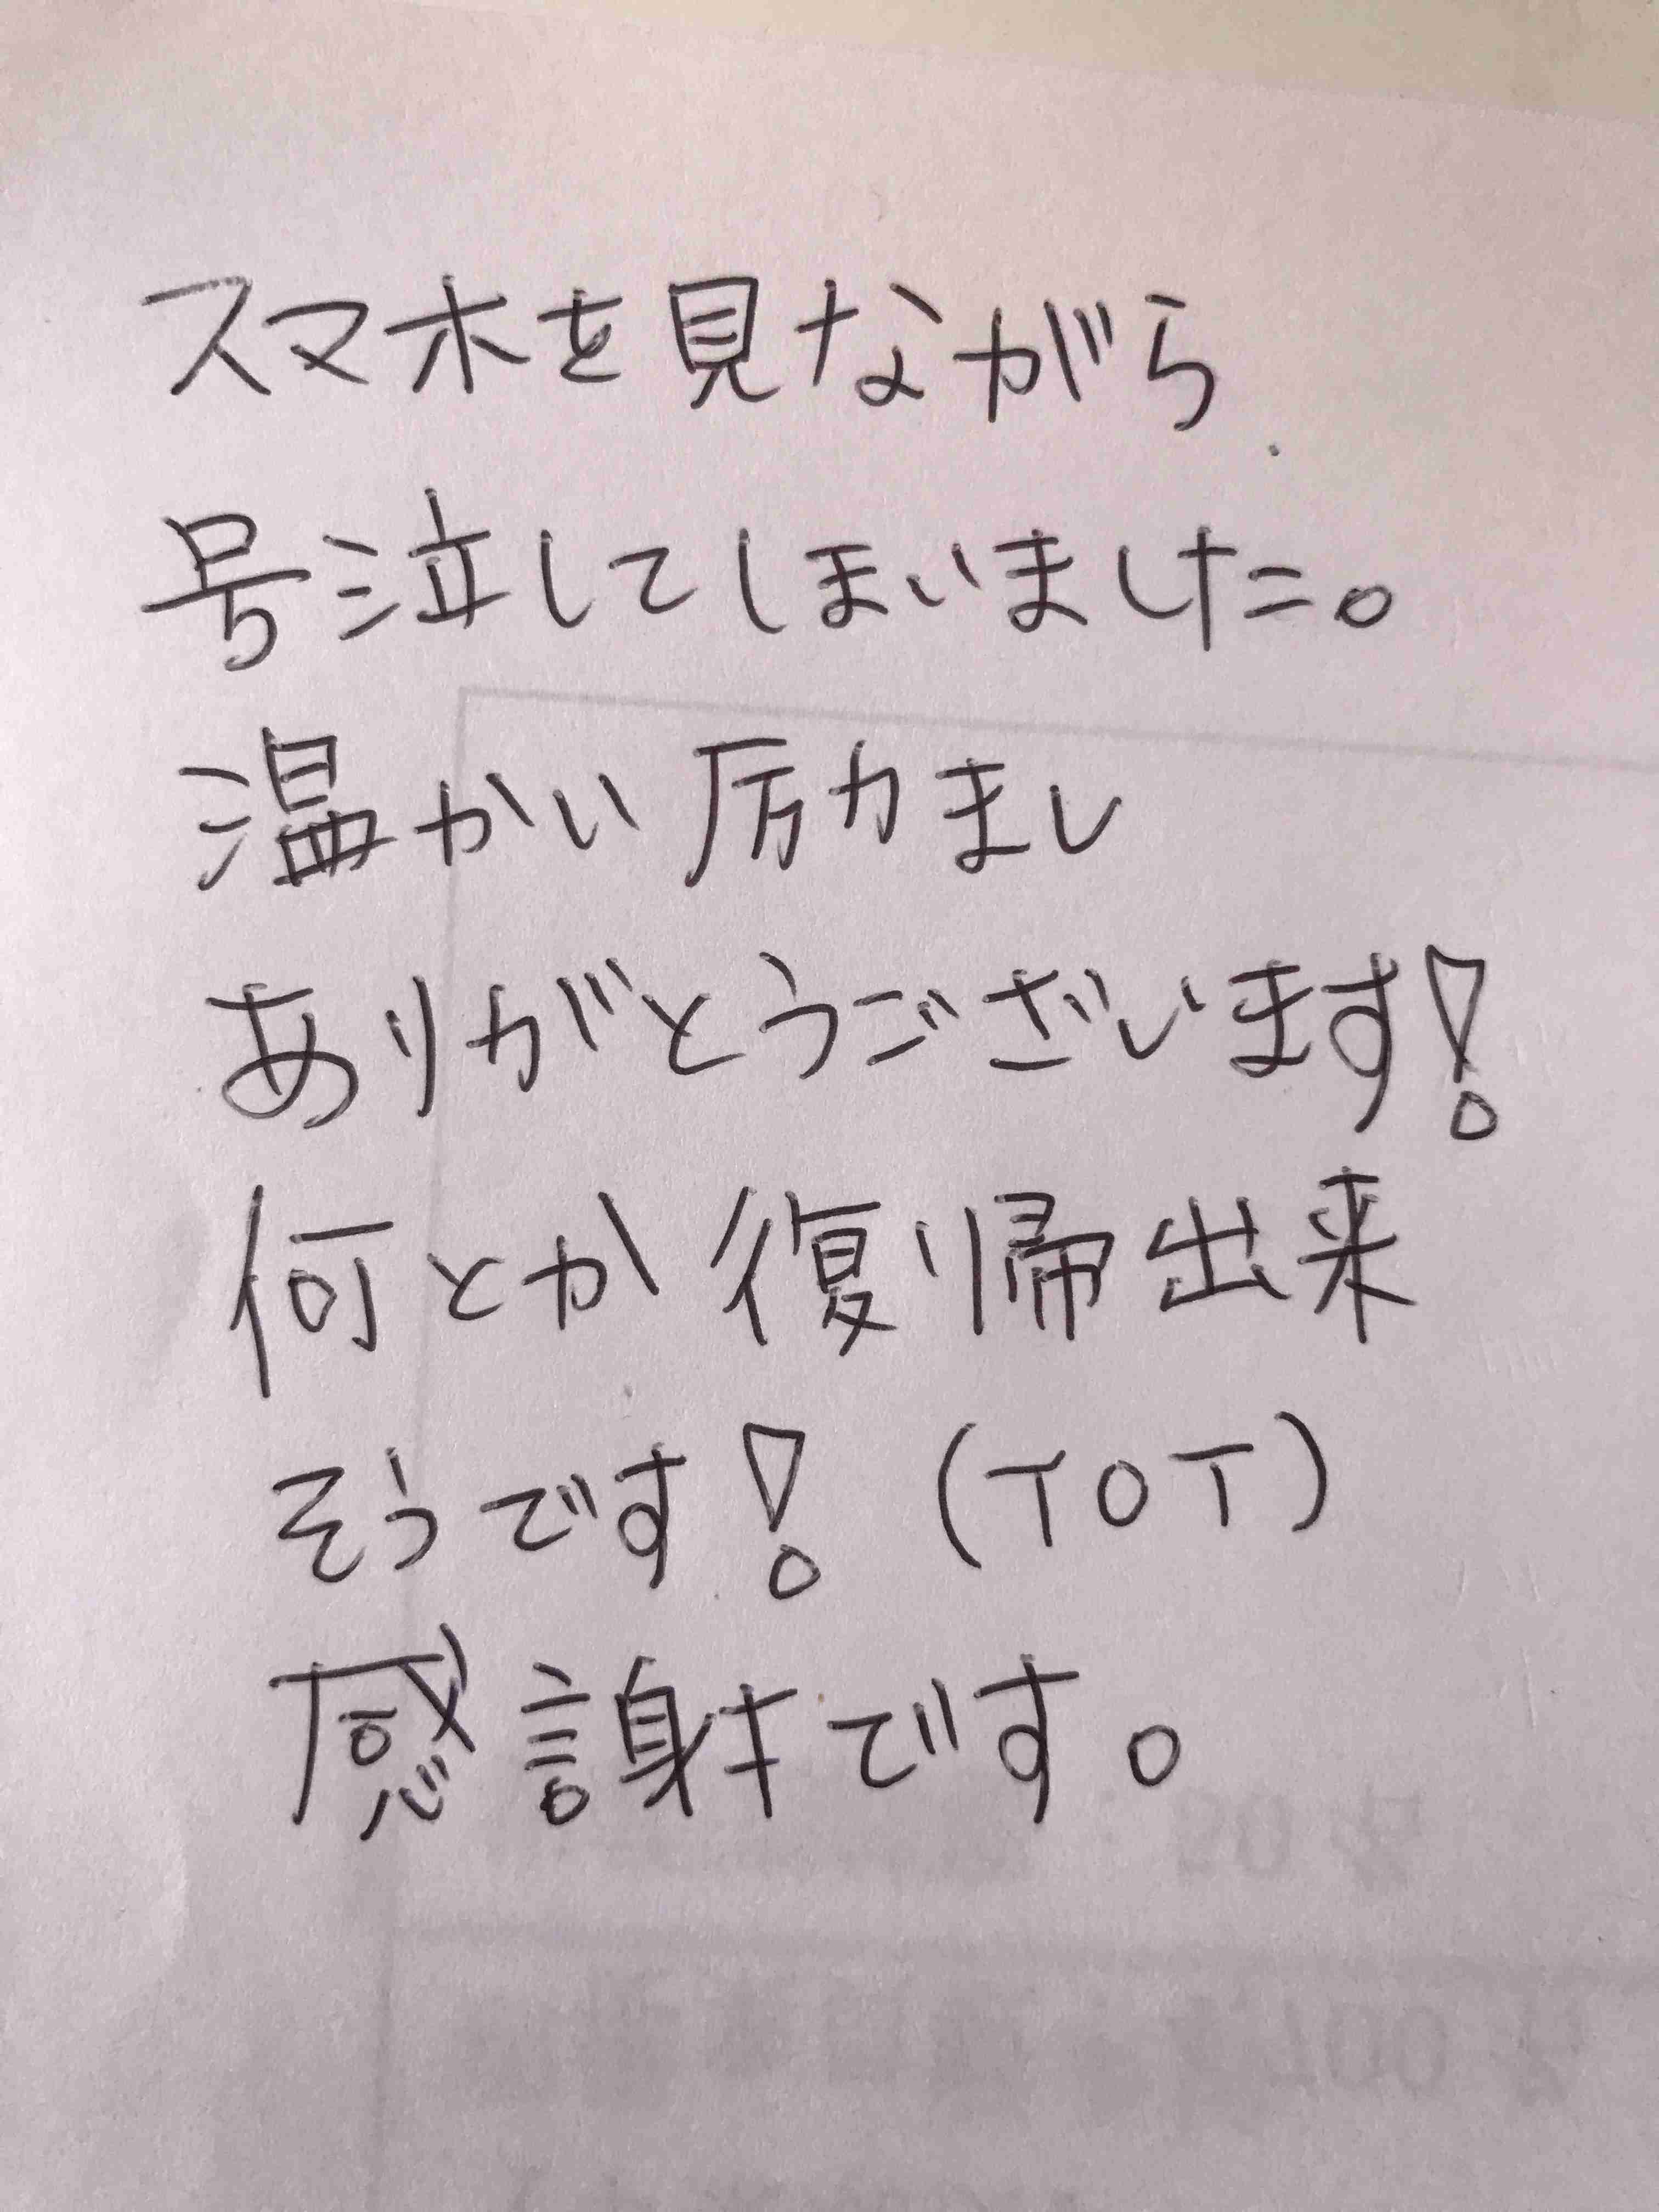 スマホを見ながら
号泣してしまいました。
温かい励まし
ありがとうございます!
何とか復帰出来
そうです!(TOT)
感謝です。